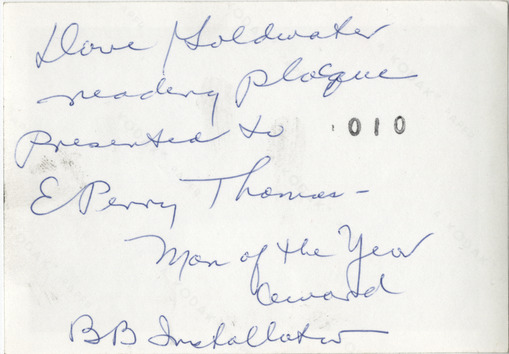 Dave Goldwater
reading plaque
presented to 010
E Perry Thomas -
Man of the Year
award
BB Installation